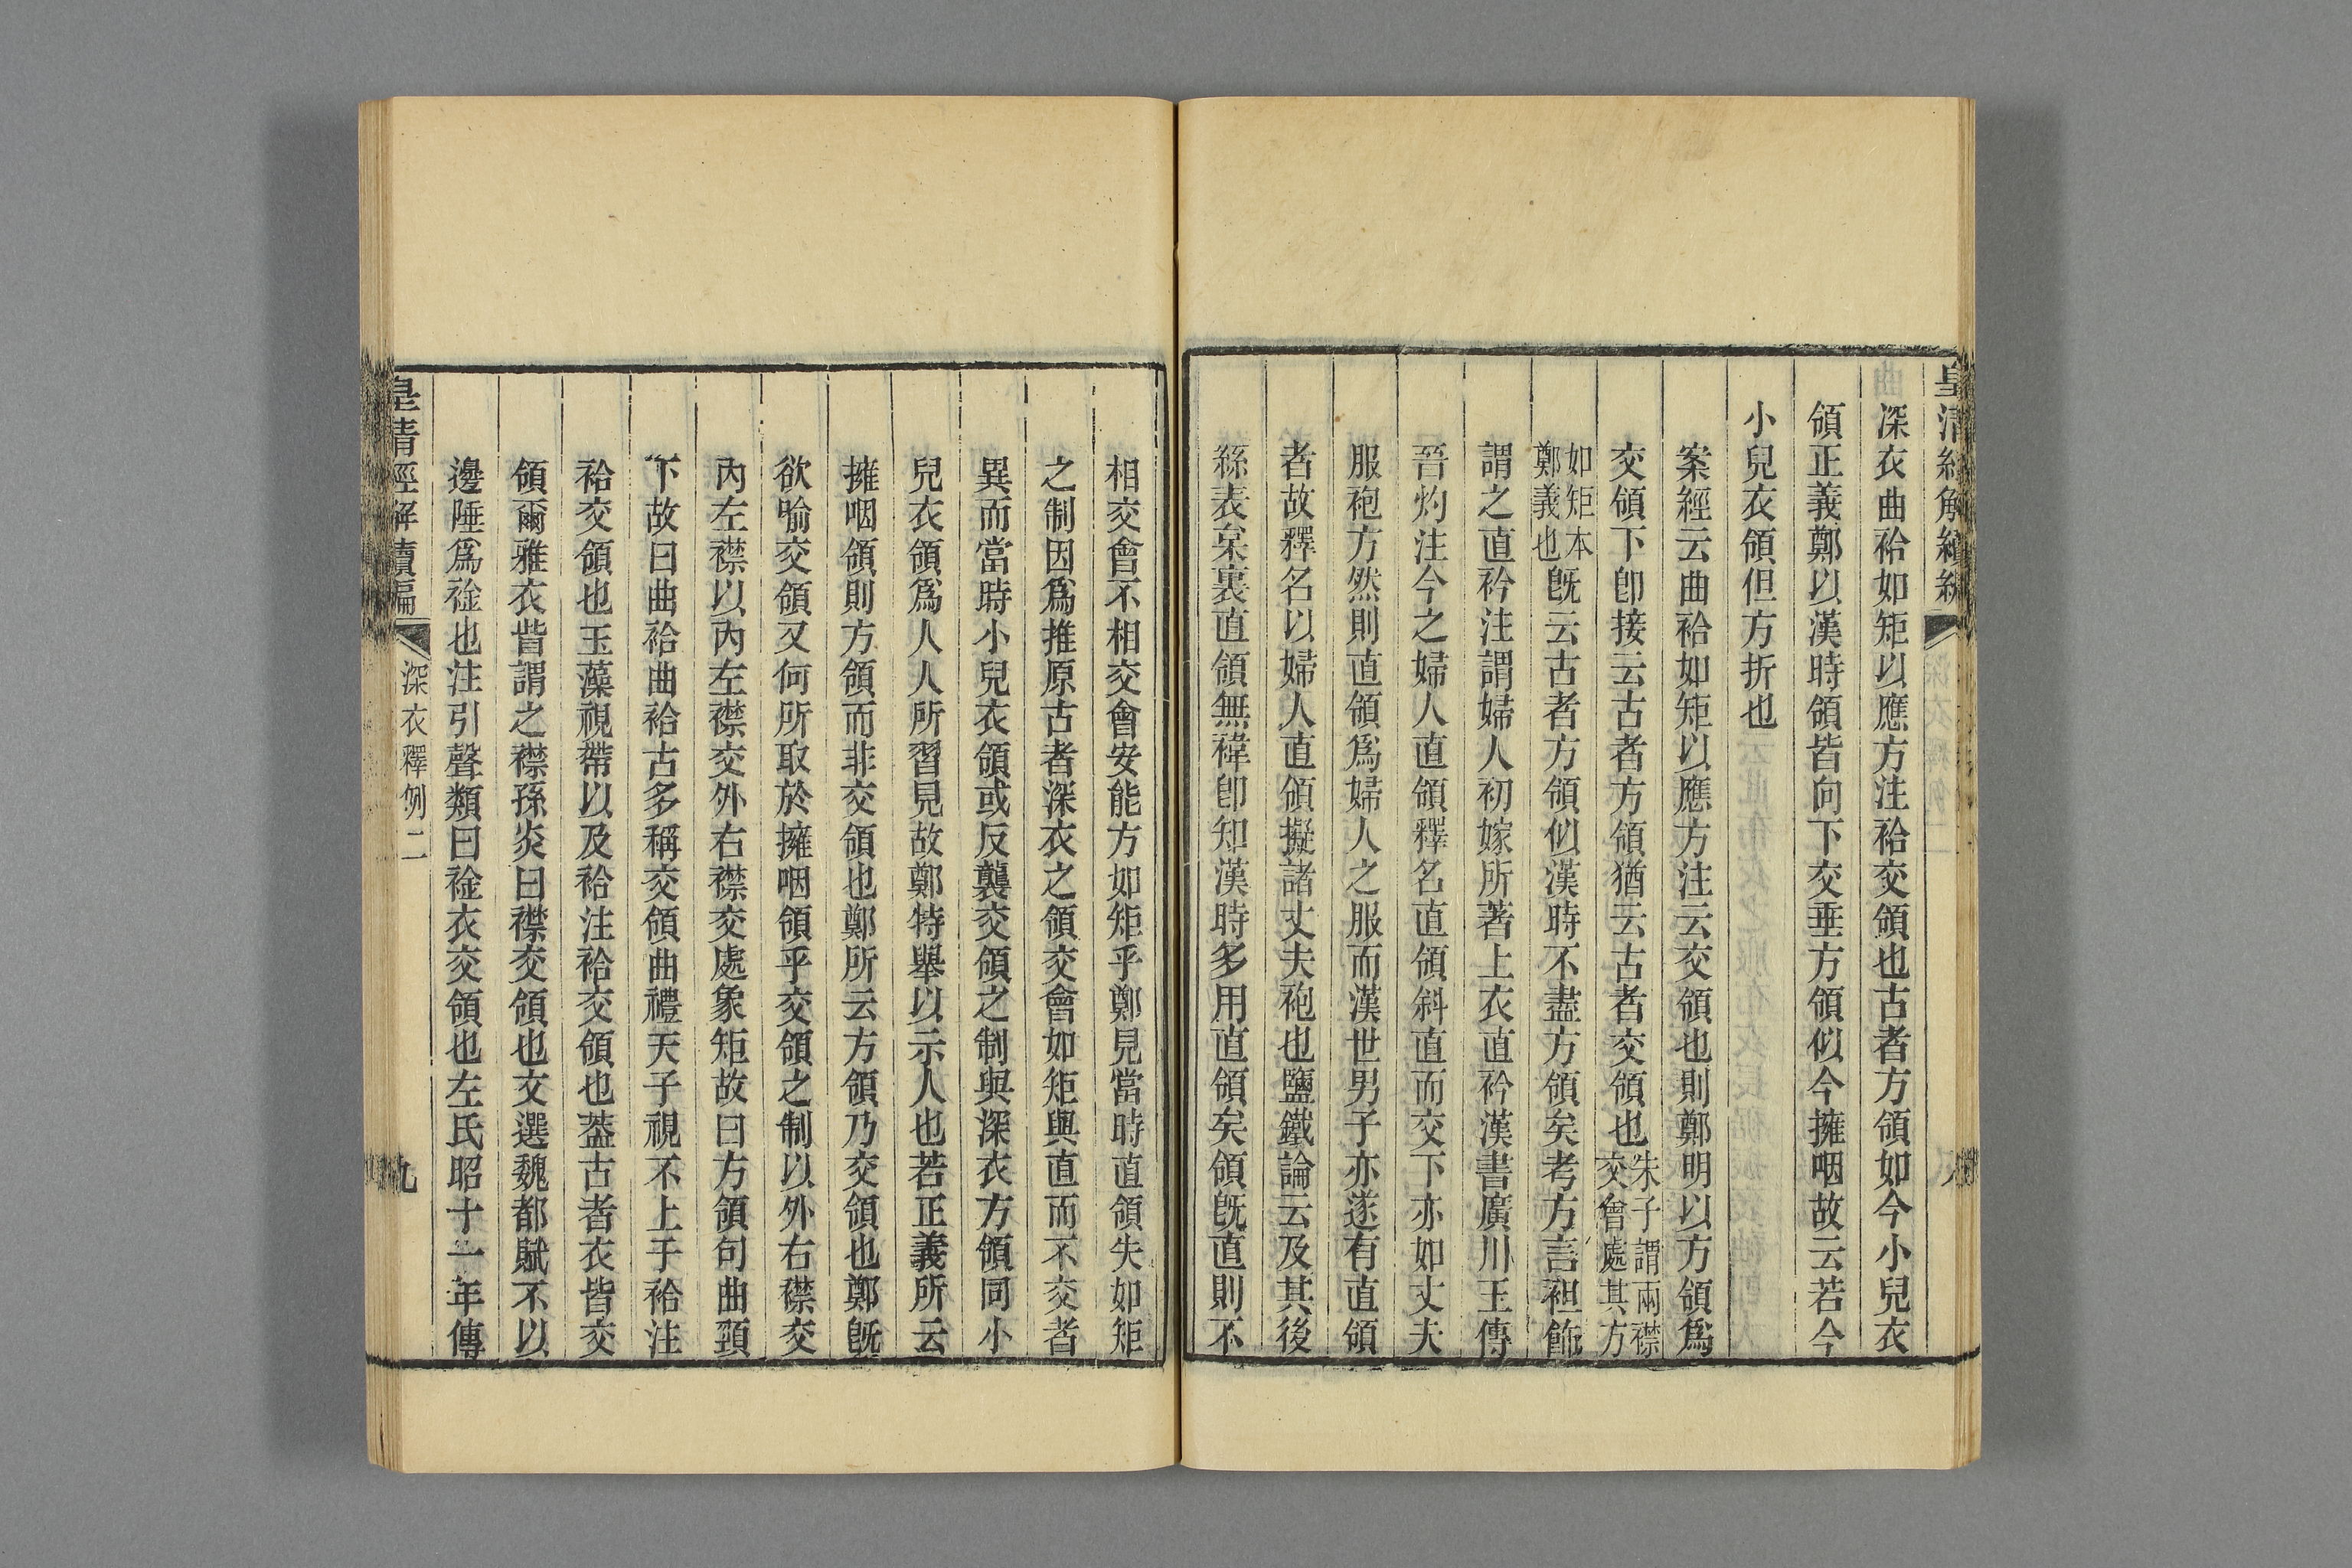 皇清經解續編
深衣曲袷如矩以應方注袷交領也古者方領如今小兒衣
領正義鄭以漢時領皆向下交垂方領似今擁咽故云若今
小兒衣領但方折也
案經云曲袷如矩以應方注云交領也則鄭明以方領爲
交領下卽接云古者方領猶云古者交領也朱子謂兩襟
交會處其方
如矩本
鄭義也旣云古者方領似漢時不盡方領矣考方言袒飾
謂之直衿注謂婦人初嫁所著上衣直衿漢書廣川王傳
晉灼注今之婦人直領釋名直領斜直而交下亦如丈夫
服袍方然則直領爲婦人之服而漢世男子亦遂有直領
者故釋名以婦人直領擬諸丈夫袍也鹽鐵論云及其後
絲表枲裏直領無褘卽知漢時多用直領矣領旣直則不
相交會不相交會安能方如矩乎鄭見當時直領失如矩
之制因爲推原古者深衣之領交會如矩與直而不交者
異而當時小兒衣領或反襲交領之制與深衣方領同小
兒衣領爲人人所習見故鄭特舉以示人也若正義所云
擁咽領則方領而非交領也鄭所云方領乃交領也鄭旣
欲喻交領又何所取於擁咽領乎交領之制以外右襟交
內左襟以內左襟交外右襟交處象矩故曰方領句曲頸
下故曰曲袷曲袷古多稱交領曲禮天子視不上于袷注
袷交領也玉藻視帶以及袷注袷交領也蓋古者衣皆交
領爾雅衣眥謂之襟孫炎曰襟交領也文選魏都賦不以
邊陲爲襟也注引聲類曰襟衣交領也左氏昭十一年傳
皇清經解續編
深衣釋例二
九